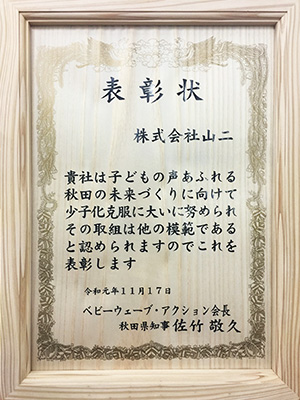 表彰状
株式会社山二
貴社は子どもの声あふれる
秋田の未来づくりに向けて
少子化克服に大いに努められ
その取組は他の模範である
と認められますのでこれを
表彰します
令和元年11月17日
ベビーウェーブ・アクション会長
秋田県知事 佐竹敬久